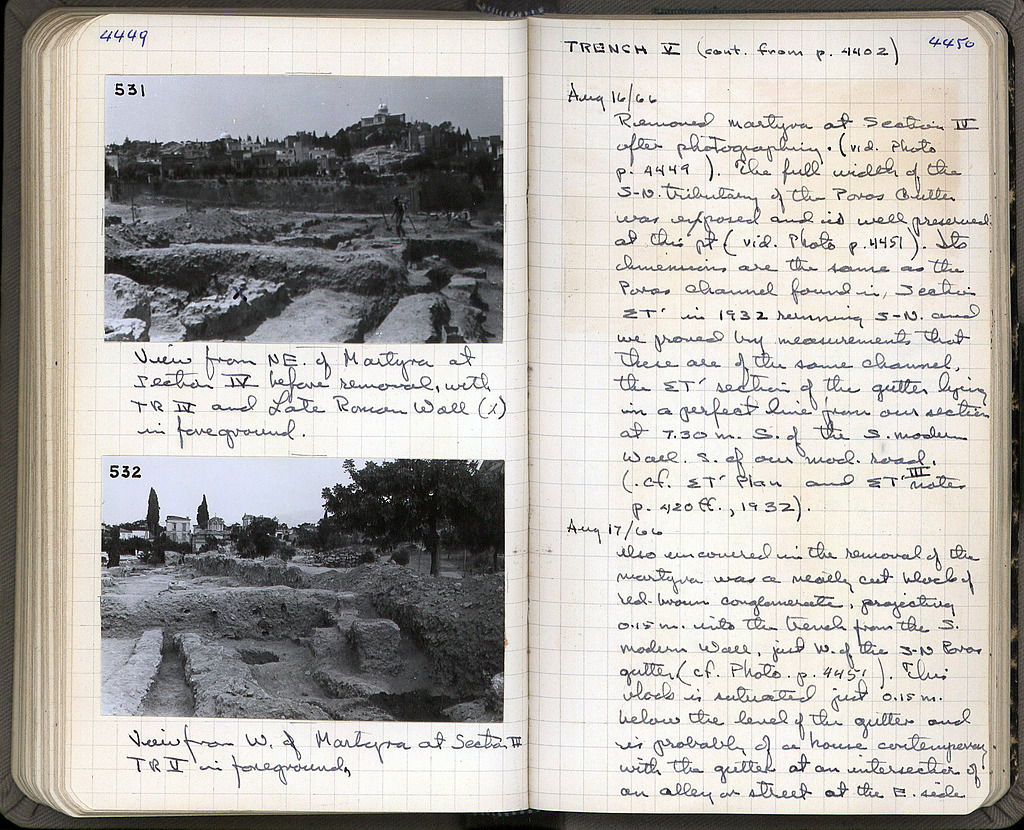 4449
531
View from NE. of Martyra at
Section IV before removal, with
TR IV and Late Roman Wall (x)
in foreground.
532
View from W. of Martyra at Section IV
TR V in foreground,
4450
TRENCH V (cont. from p. 4402)
Aug 16/66
Removed martyra at Section IV
after photographing. (vid. Photo
p. 4449 ). The full width of the
S-N tributary of the Poros Gutter
was exposed and is well preserved
at this pt (vid. Photo p. 4451). Its
dimensions are the same as the
Poros channel found in Section
ΣT' in 1932 running S-N. and
we proved by measurements that
these are of the same channel,
the ΣT' section of the gutter lying
in a perfect line from our section
at 7.30 m. S. of the S. modern
Wall. S. of our mod. road.
(cf. ΣT' Plan and ΣT' III notes
p. 420 ff., 1932).
Aug 17/66
Also uncovered in the removal of the
martyra was a neatly cut block of
red-brown conglomerate, projecting
0.15 m. into the trench from the S.
modern Wall, just W. of the S-N Poros
gutter (cf. Photo. p. 4451 ). This
block is situated just 0.15 m.
below the level of the gutter and
is probably of a house contemporary
with the gutter at an intersection of
an alley or street at the E. side